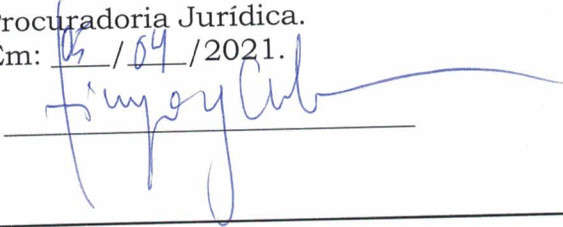 rocuradoria Jurídica.
Em: 05/04/2021.